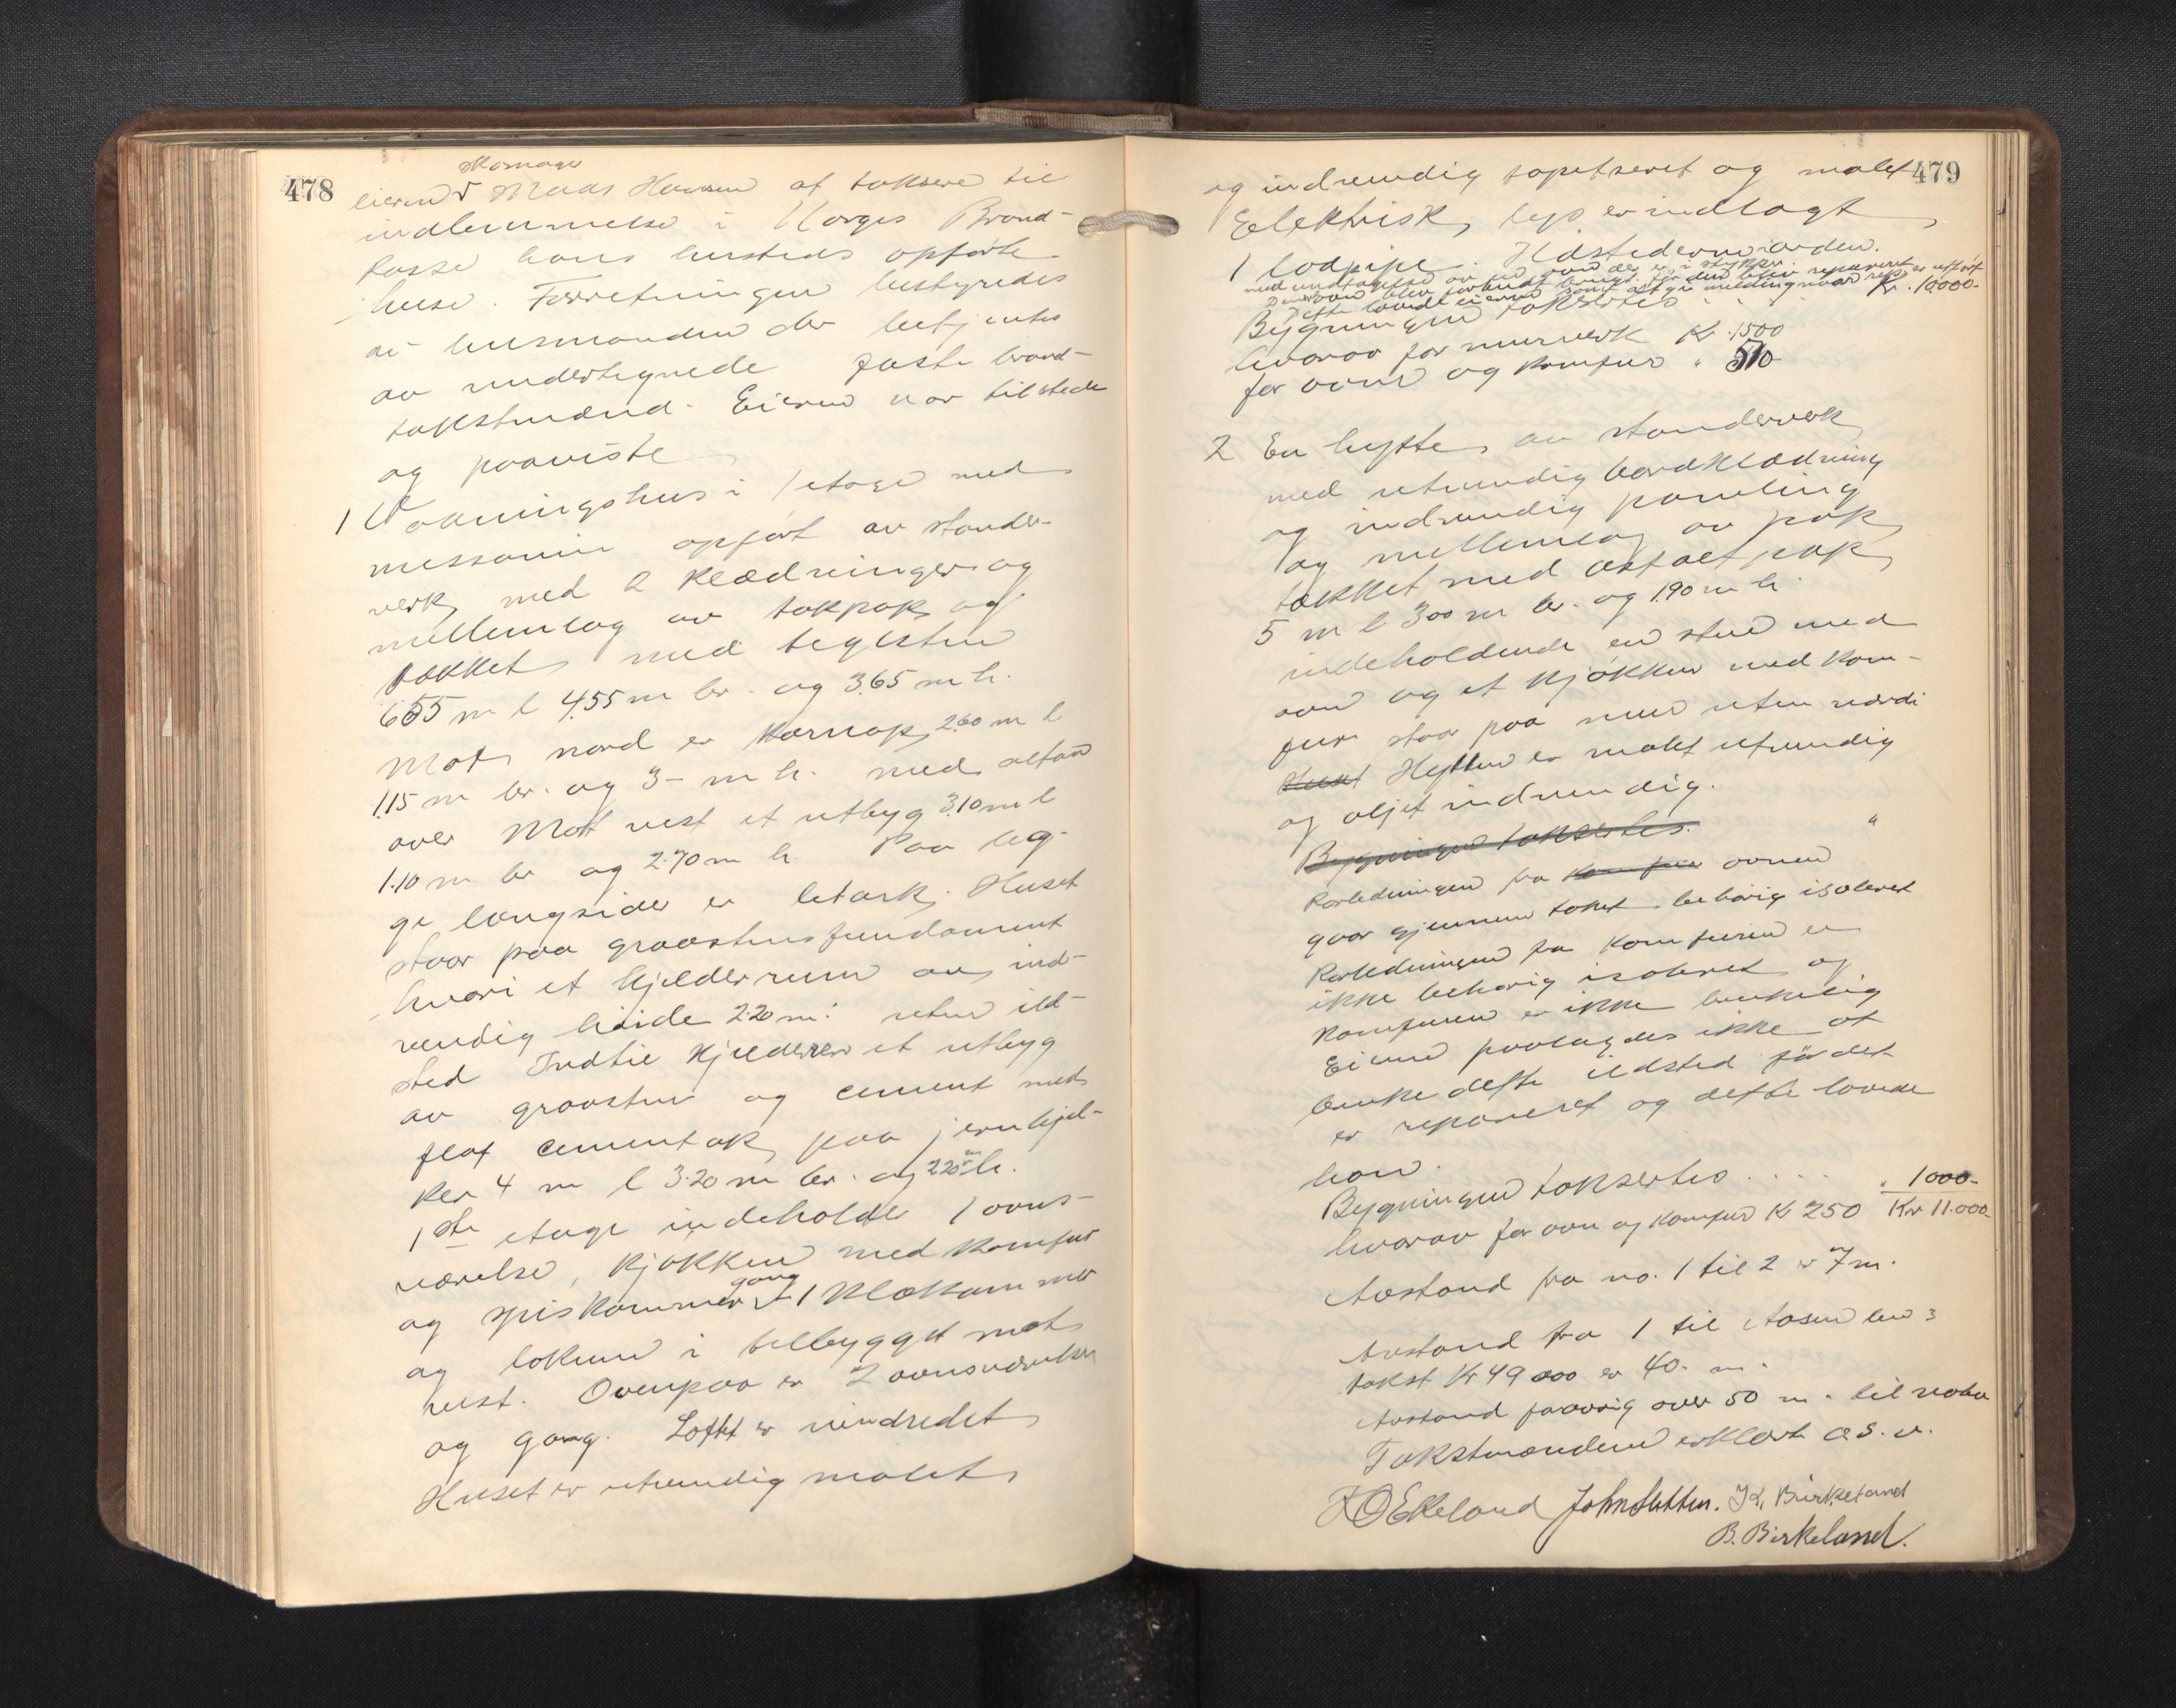 478
Skomager
eieren Mads Hansen at taksere til
indlemmelse i Norges Brand-
kasse hans hersteds opførte
huse. Forretningen bestyredes
av lensmanden der betjentes
av undertegnede faste brand-
takstmænd. Eieren var tilstede
og paaviste
1 Vaaningshus i 1 etage med
messanin opført av stender-
verk med 2 klædninger og
mellemlag av takpap og
tækket med teglsten
655 m l 4,55 m br. og 3,65 m h.
Mot nord er karnap 2.60 m l
1,15 m br. og 3- m h. med altan
over Mot vest et utbyg 3.10 m l
1.10 m br og 2.70 m h Paa beg-
ge langsider er letark. Huset
staar paa graastensfundament
hvori et kjelderrum av ind-
vendig høide 2.20 m. uten ild-
sted Indtil kjelderen et utbyg
av graasten og cement med
flat cementtak paa jernbjel-
ker 4 m l 3.20 m br. og 220 m h.
1ste etage indeholder 1 ovns-
værelse, kjøkken med komfur
og spiskammer gang 1 klækammer
og lokum i tilbygget mot
vest. Ovenpaa er 2 ovnsværelser
og gang. Loftet er uindredet
Huset er utvendig malet
479
og indvendig tapetseret og malet
Elektrisk lys er indlagt
1 lodpipe. Ildstederne i orden.
med undtagelse av en ovn der er i stykker.
Denne ovn blev forbudt brugt før den blev reparert
Dette lovede eieren samt at gi melding naar rep. er utført
Bygningen taksertes . . . Kr. 10000-
hvorav for murverk Kr. 1500
for ovne og komfur " 510
2 En hytte av stenderverk
med utvendig bordklædning
og indvendig paneling
og mellemlag av pap
tækket med asfaltpap
5 m l 300 m br. og 1.90 m h
indeholdende en stue med
ovn og et kjøkken med kom-
fur staar paa mur uten værdi
Huset Hytten er malt utvendig
og oljet indvendig.
Bygningen taksertes. "
Rørledningen fra komfur ovnen
gaar gjennem taket behørig isoleret
Rørledningen fra komfuren er
ikke behørig isoleret og
komfuren er ikke brukelig
Eieren paalagdes ikke at
bruke dette ildsted før det
er reparert og dette lovede
han.
Bygningen taksertes . . . . " 1000-
hvorav for ovn og komfur Kr 250 Kr 11.000-
Avstand fra no. 1 til 2 er 7 m.
Avstand fra 1 til
takst Kr 49000 er 40. m.
Avstand forøvrig over 50 m. til nabo
Takstmændene erklærte o. s. v.
Ekeland John Sletten. K. Birkeland
B. Birkeland.